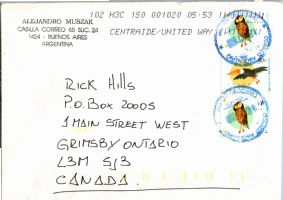 102 H3C ISO 001020 05:53
CENTRAIDE/UNITED WAY
ALEJANDRO MUSZAK
CASILLA CORREO 65 SUC. 24
1424 - BUENOS AIRES
ARGENTINA
RICK HILLS
P.O. BOX 20005
1 MAIN STREET WEST
GRIMSBY ONTARIO
L3M 5J3
CANADA.